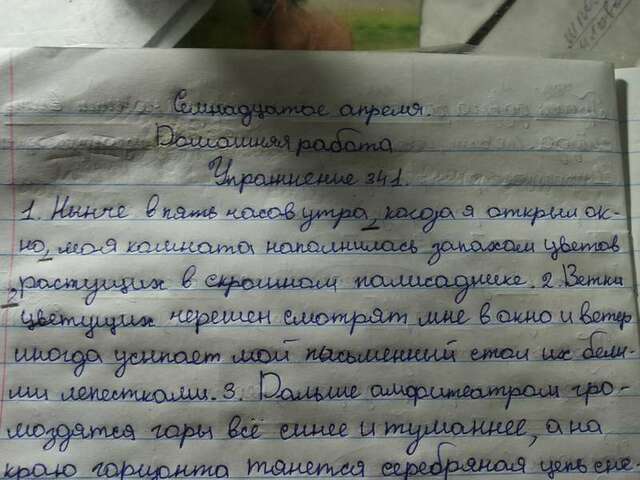 Семнадцатое апреля.
Домашняя работа
Упражнение 341.
1. Нынче в пять часов утра, когда я открыл ок-
но, моя комната наполнилась запахом цветов
, растущих в скромном палисаднике. 2. Ветки
цветущих черешен смотрят мне в окно и ветер
иногда усыпает мой письменный стол их белы-
ми лепестками. 3. Дальше амфитеатром гро-
моздятся горы всё синее и туманнее, а на
краю горизонта тянется серебряная цепь сне-